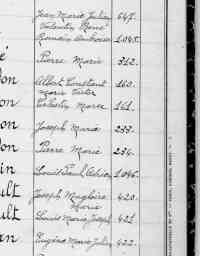 Jean Marie Julien 647.
Valentin René
Romain Ambroise 1.045.
é
Pierre Marie 312.
don Albert Constant 160.
Marie Victor
on Célestin Marie 161.
on Joseph Marie 233.
on Pierre Marie 234.
in Louis Paul 1.046.
ult Joseph Magloire 420.
Marie
ult Louis Marie Joseph 421.
an Eugène Marie Julien 422.